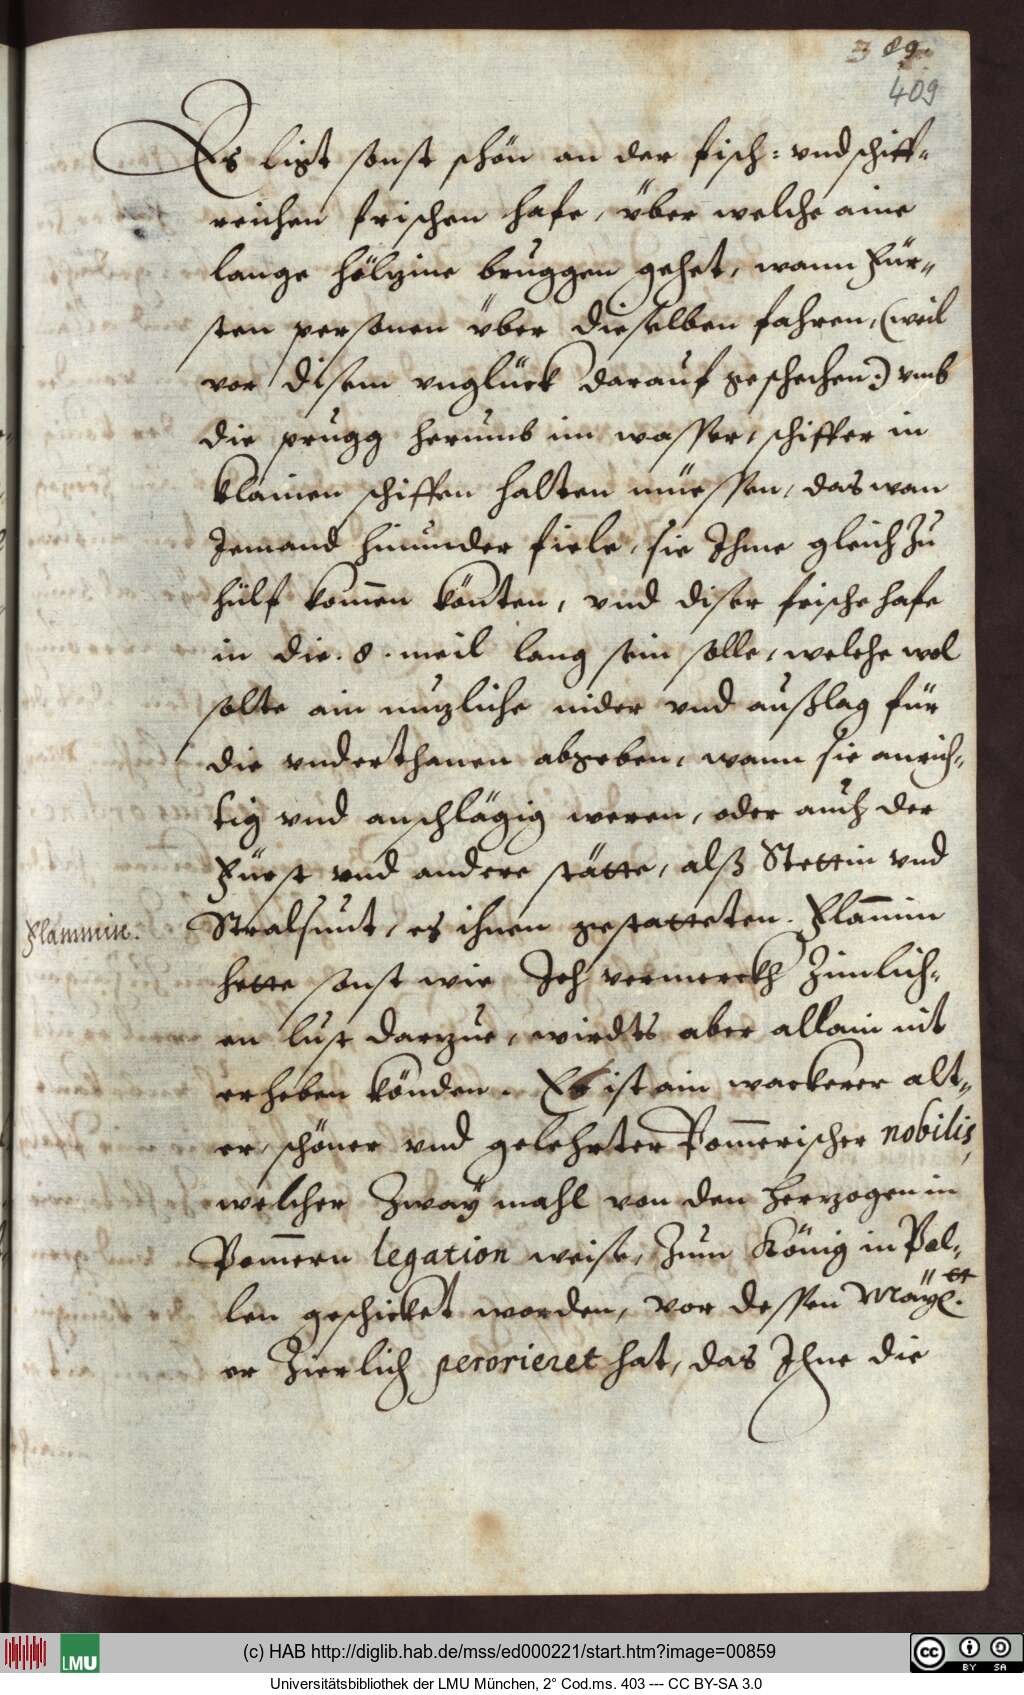 389.
409
Es ligt sonst schön an der fisch: vnd schiff-
reichen frischen hafe, über welche aine
lange hölzine bruggen gehet, wann Für-
sten personen über dieselben fahren, (weil
vor disem vnglückh darauf geschechen:) vmb
die prugg herumb im wasser, schiffer in
klainen schiffen halten müessen, das wan
Jemand hinunder fiele, sie Ihme gleich zu
hülf kom̄en könten, vnd diser frische hafe
in die .8. meil lang sein solle, welche wol
solte ain nuzliche nider vnd außlag für
die vnderthanen abgeben, wann sie anrich-
tig vnd anschlägig weren, oder auch der
Fürst vnd andere stätte, alß Stettin vnd
Stralsunt, es ihnen gestatteten. Flam̄in
Flammin.
hette sonst wie Ich vermerckh zimlich-
en lust darzue, wirdts aber allain nit
erheben könden. Es ist ain wackerer alt-
er, schöner vnd gelehrter Pom̄erischer nobilis,
welcher zway mahl von den herzogen in
Pom̄ern legation weise, zum König in Pol-
len geschicket worden, vor dessen Mäÿ. ett
er zierlich perorieret hat, das Ihne die
(c) HAB http://diglib.hab.de/mss/ed000221/start.htm?image=00859
LMU
CC BY SA
Universitätsbibliothek der LMU München, 2° Cod.ms. 403 --- CC BY-SA 3.0